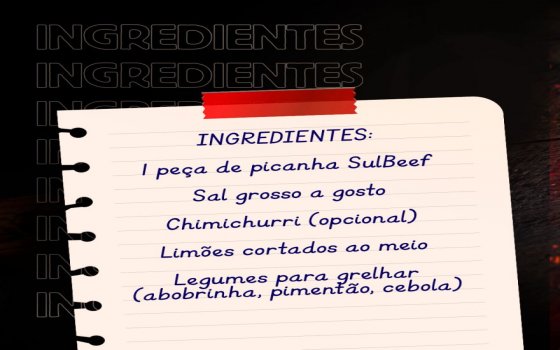 INGREDIENTES
INGREDIENTES
INGREDIENTES:
1 peça de picanha SulBeef
Sal grosso a gosto
Chimichurri (opcional)
Limões cortados ao meio
Legumes para grelhar
(abobrinha, pimentão, cebola)